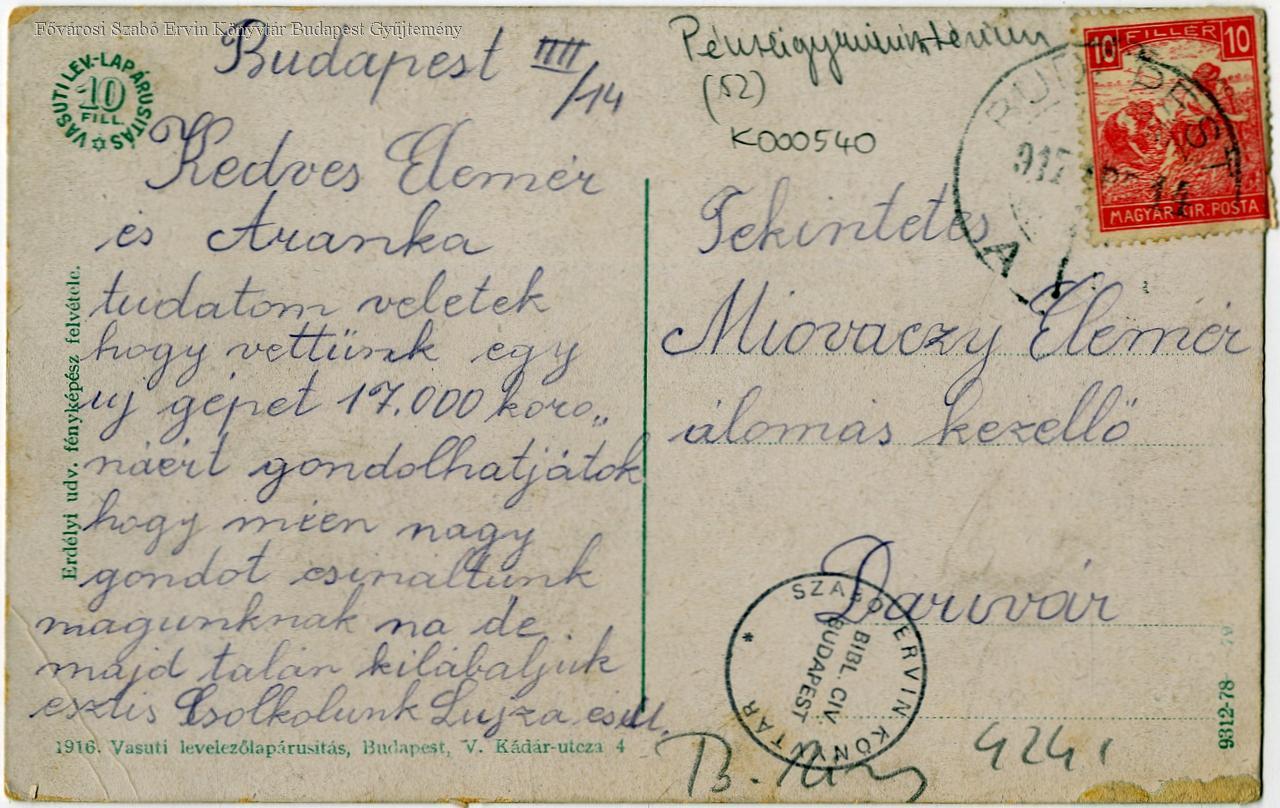 Fővárosi Szabó Ervin Könyvtár Budapest Gyűjtemény
VASUTI LEV-LAPÁRUSITÁS
10
FILL
Budapest IIII
/14
Kedves Elemér
és Aranka
tudatom veletek
hogy vettünk egy
uj gépet 17.000 koro„
náért gondolhatjátok
hogy mien nagy
gondot csinaltunk
magunknak na de
majd talán kilábaljuk
eztis Csolkolunk Lujza
Erdélyi udv. fényképész felvétele.
1916. Vasuti levelezőlapárusitás, Budapest, V. Kádár-utcza 4
Pénzügyminisztérium
(52)
K000540
10 FILLÉR 10
MAGYAR KIR. POSTA
BUDAPEST
917 14
A
Tekintetes
Miovaczy Elemér
álomás kezellő
Daruvár
SZABÓ ERVIN KÖNYVTÁR *
BIBL. CIV.
BUDAPEST
9312-78
4241